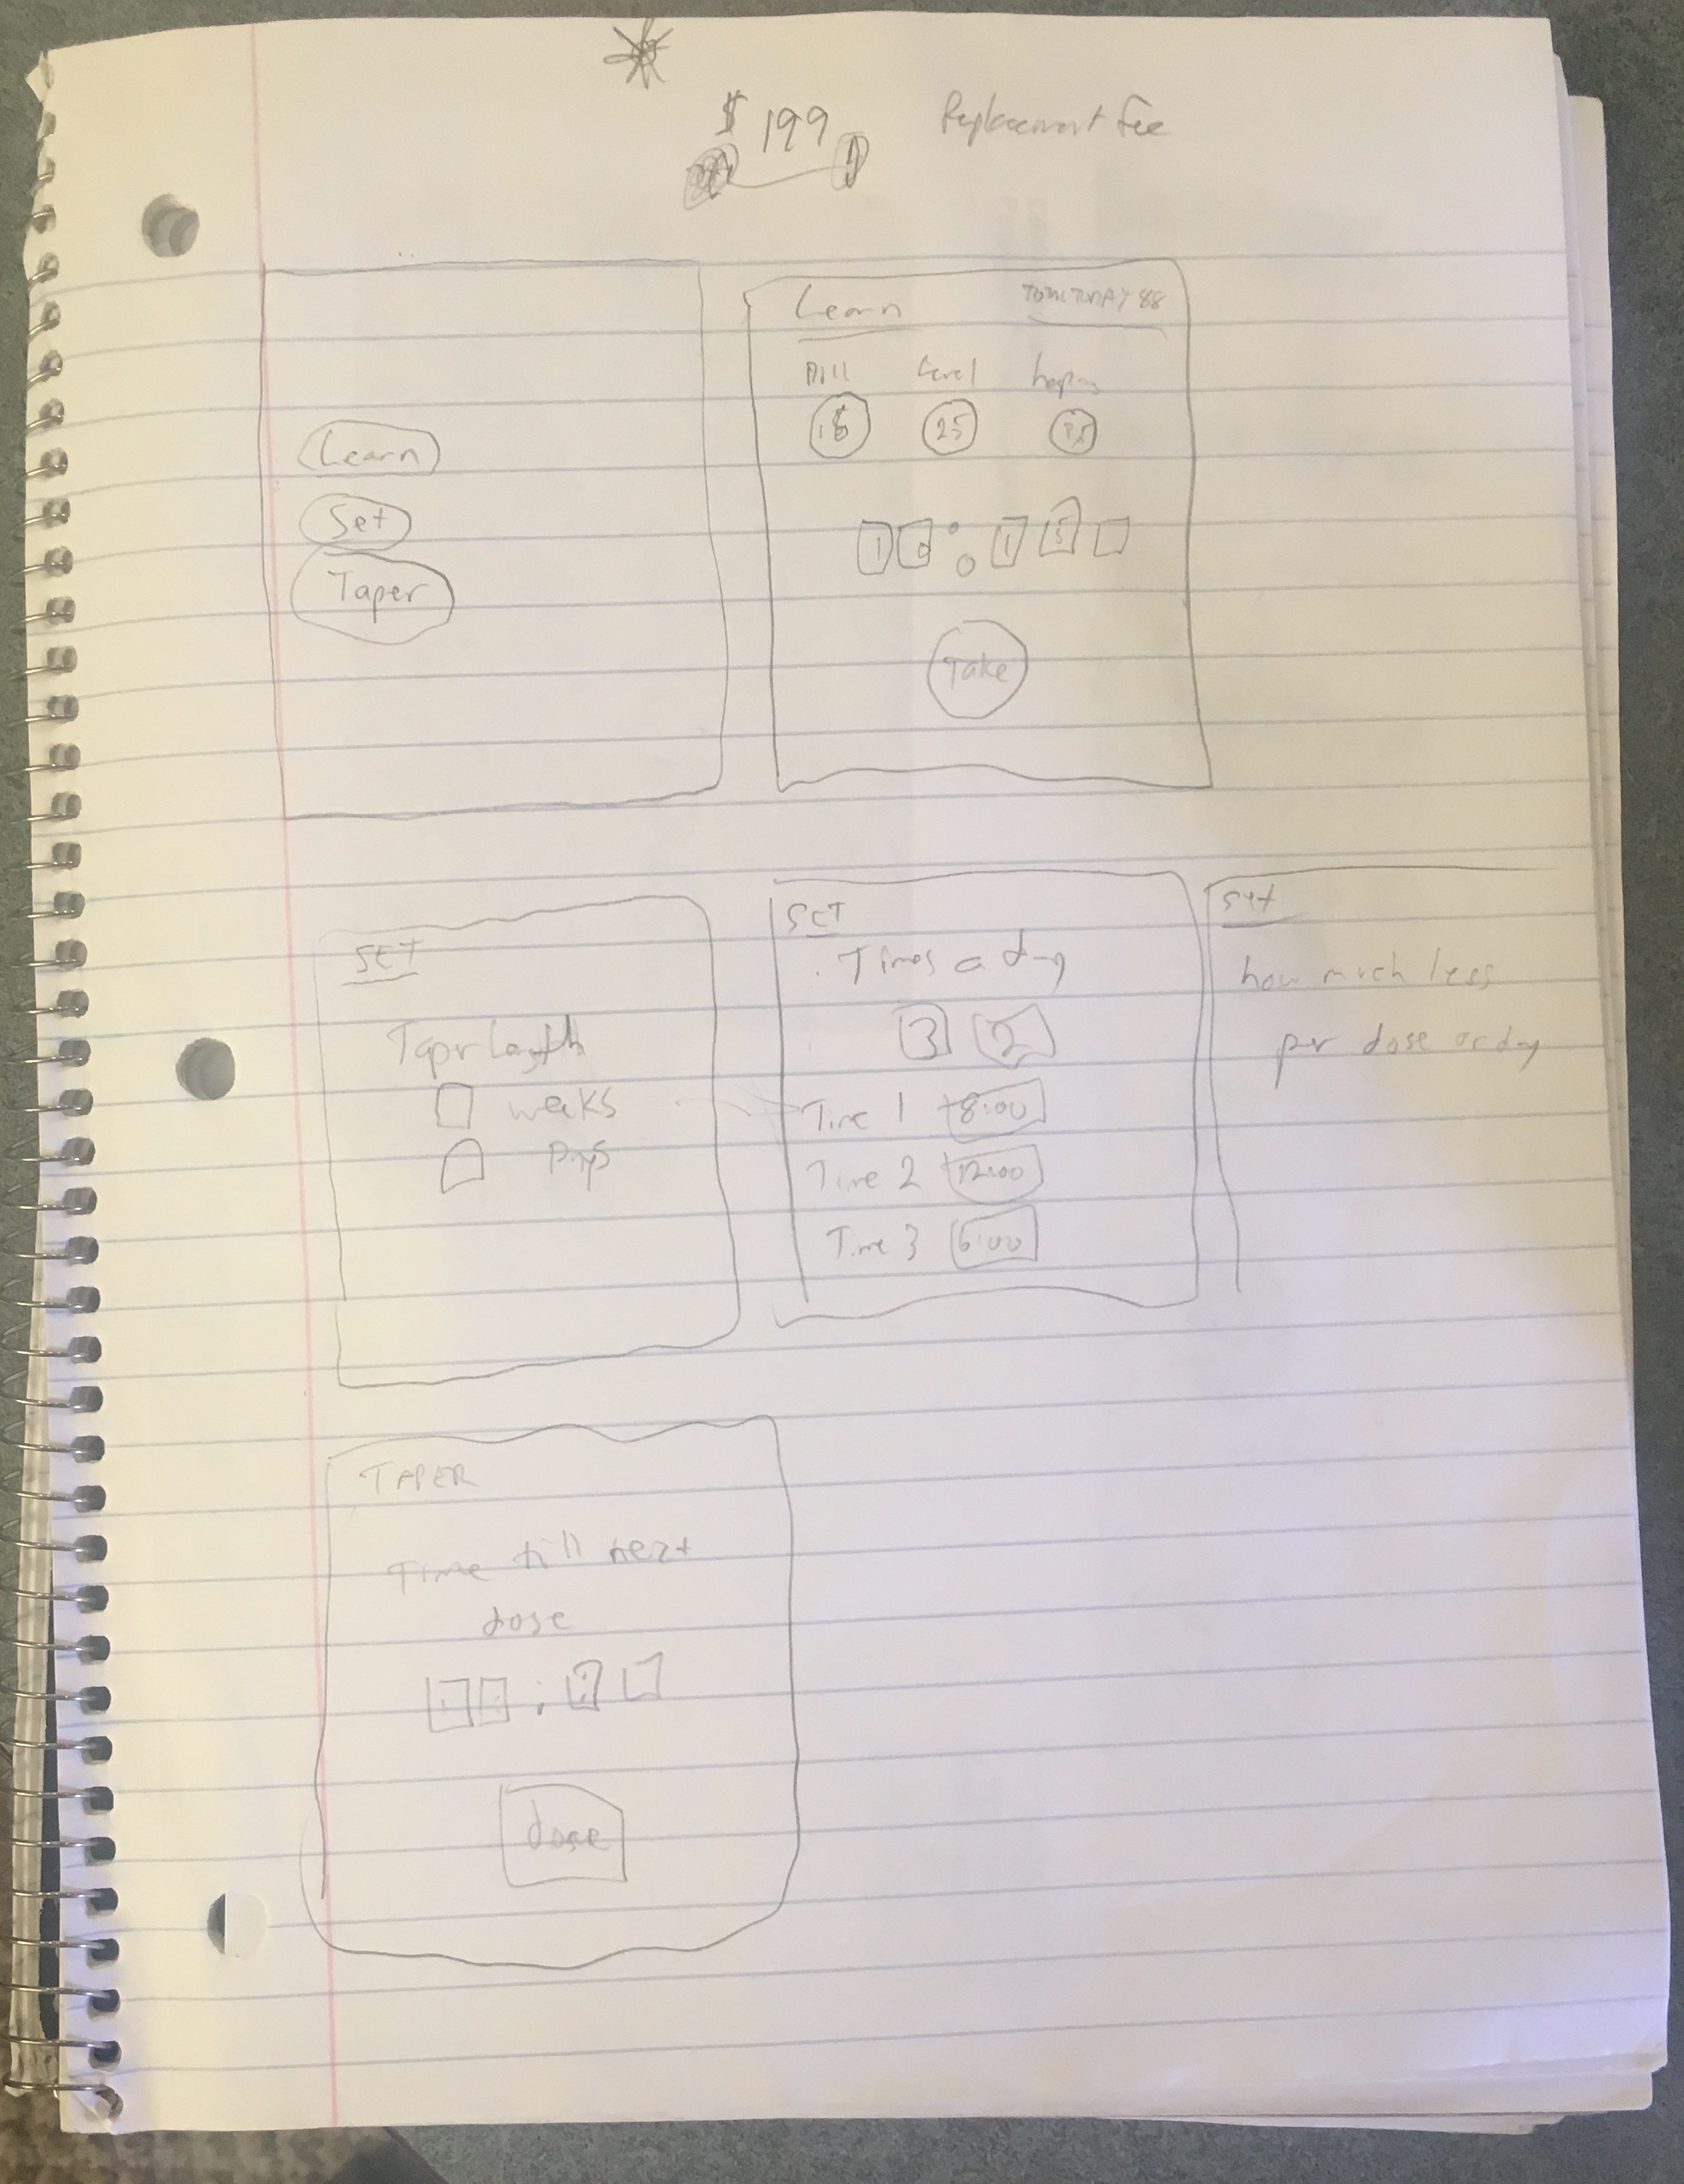 $ 199 Replacement Fee
Learn
Set
Taper
Learn
TOTAL TODAY 88
Pill Level
25
Take
SET
Taper Length
weeks
Days
SET
Times a day
3 2
Time 1 8:00
Time 2 12:00
Time 3 6:00
set
how much less
per dose or day
TAPER
Time till next
dose
:
dose